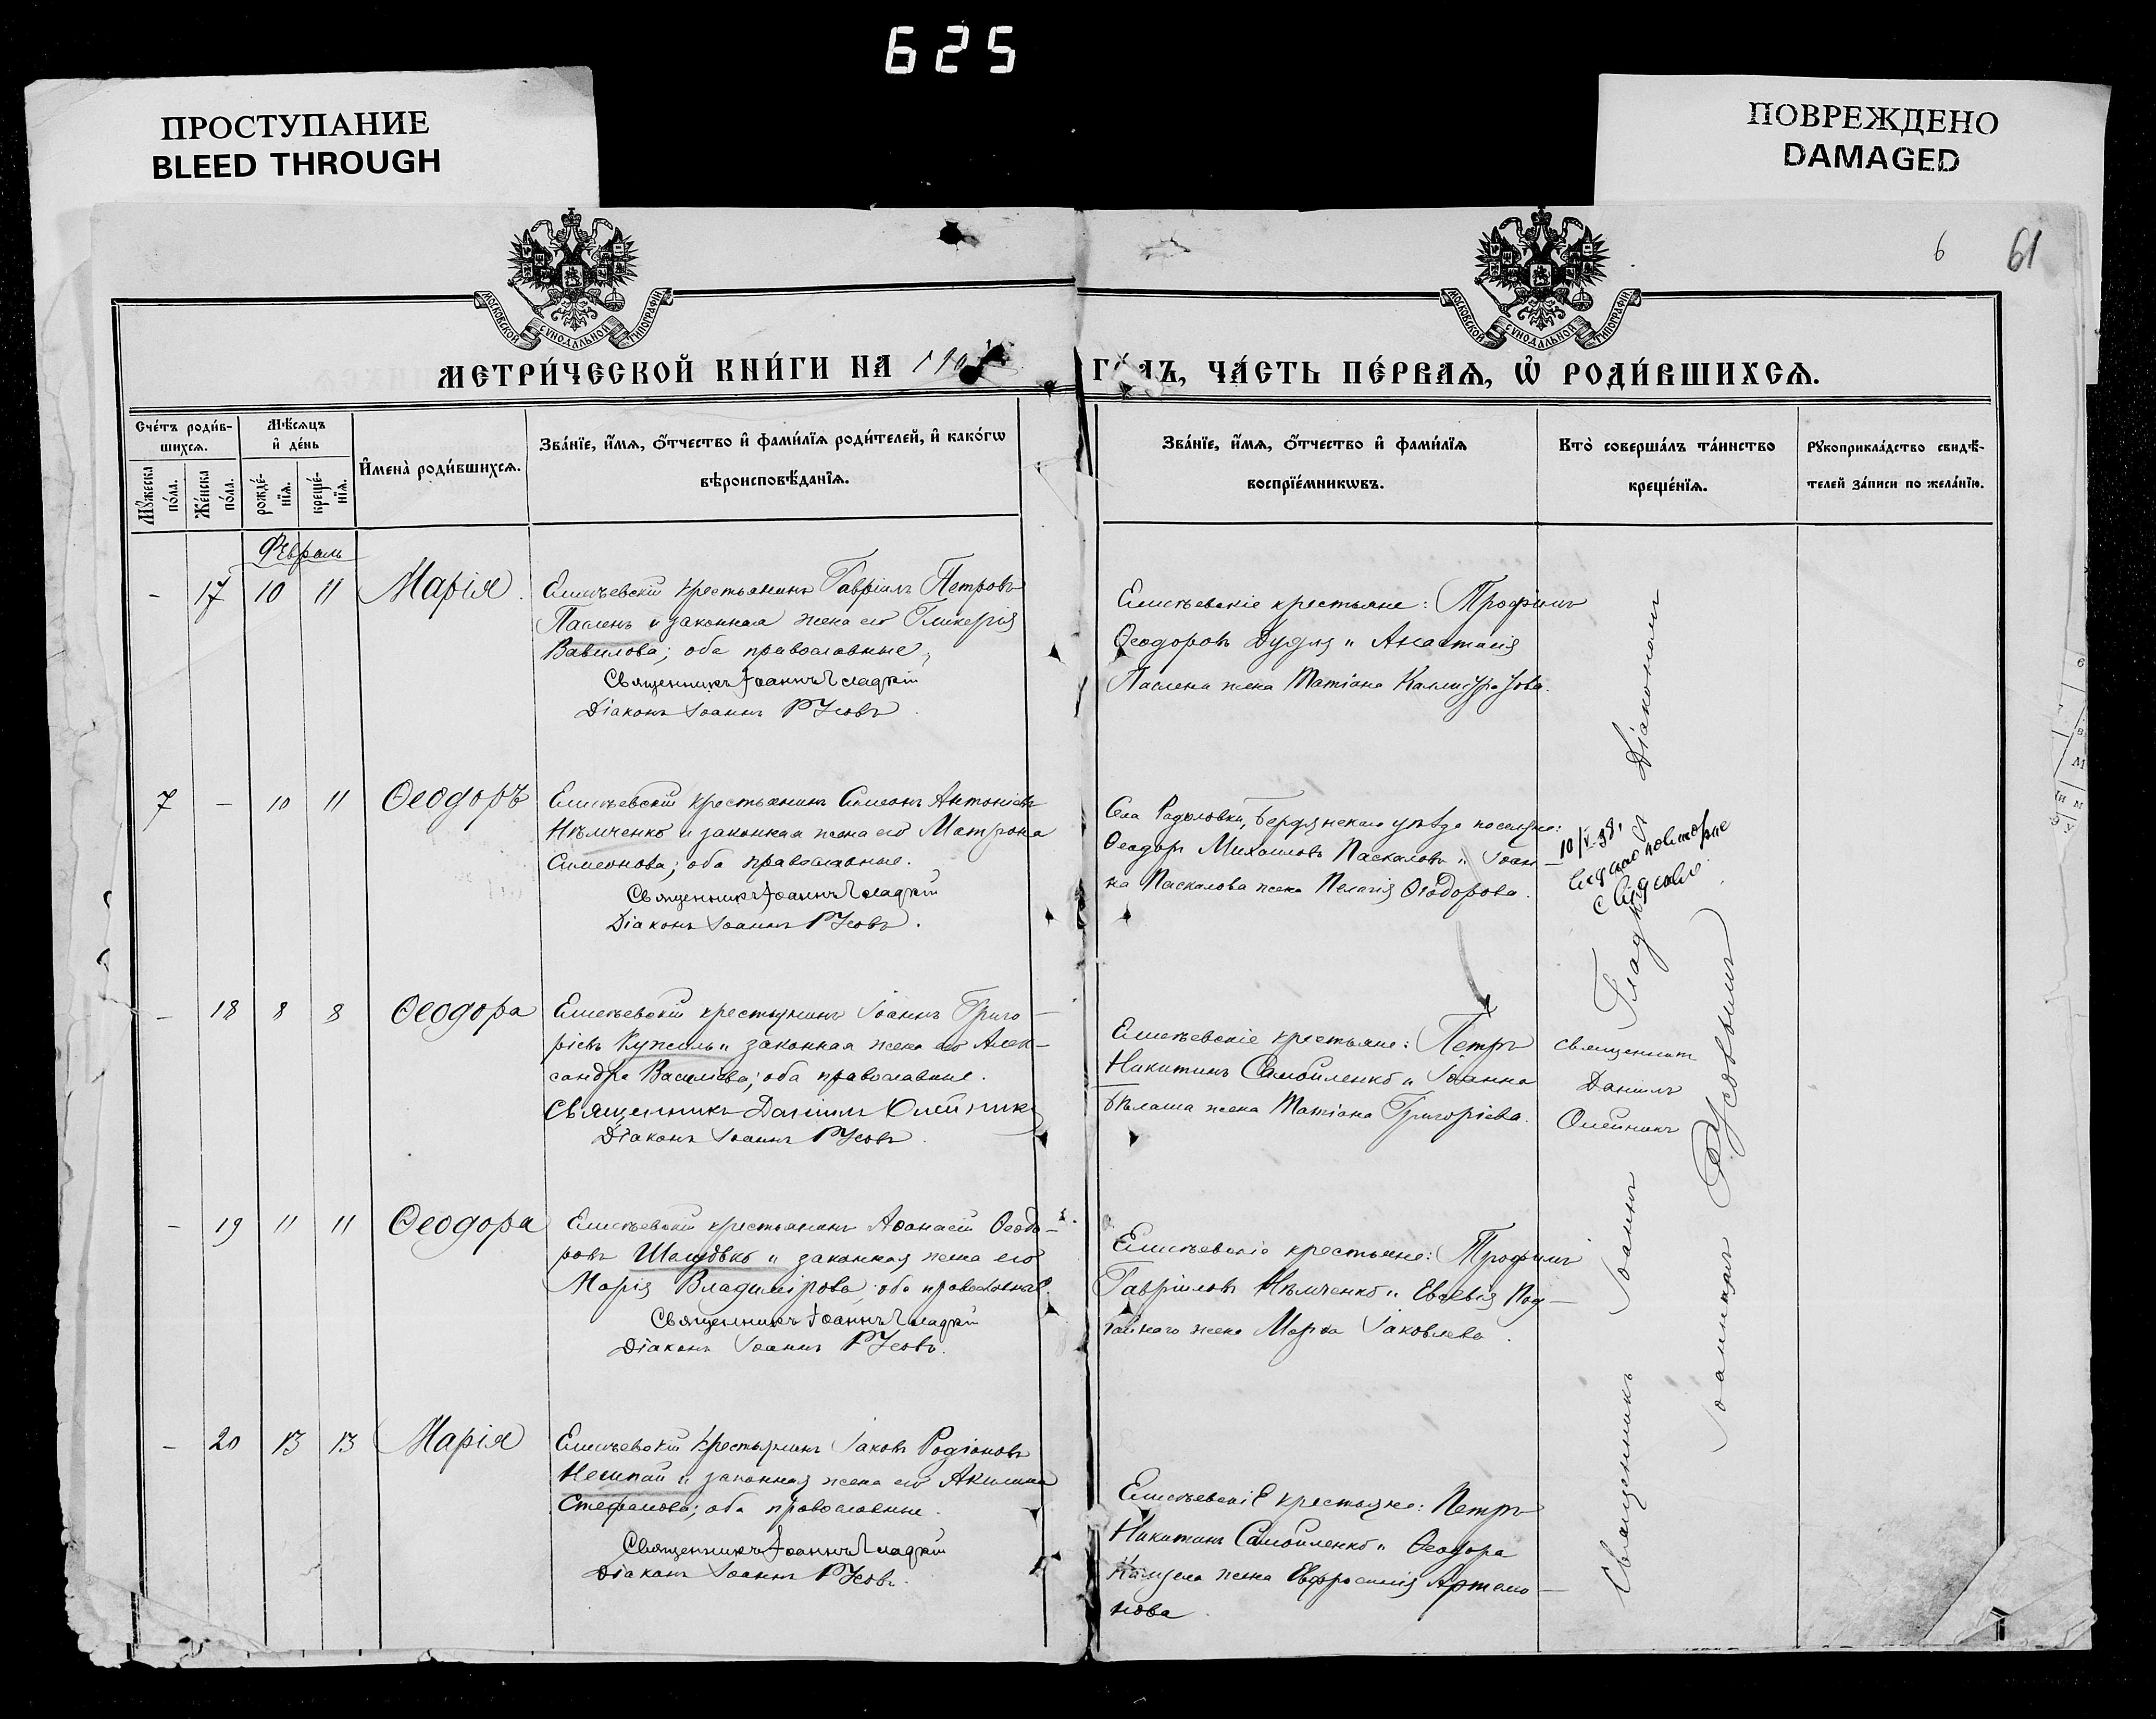 625
ПРОСТУПАНИЕ
BLEED THROUGH
ПОВРЕЖДЕНО
DAMAGED
6 61
МОСКОВСКОЙ СѴНОДАЛЬНОЙ ТИПОГРАФІИ
МОСКОВСКОЙ СѴНОДАЛЬНОЙ ТИПОГРАФІИ
МЕТРИ́ЧЕСКОЙ КНИ́ГИ НА 190
ГО́ДЪ, ЧА́СТЬ ПЕ́РВАѦ, Ѡ҆ РОДИ́ВШИХСѦ.
Сче́тъ роди́в-
шихсѧ.
Мꙋ́жеска по́ла.
Же́нска по́ла.
Мѣ́сѧцъ
и҆ де́нь
рожде́-нїѧ.
креще́-нїѧ.
И҆мена̀ роди́вшихсѧ.
Зва́нїе, и҆́мѧ, ѻ҆́тчество и҆ фами́лїѧ роди́телей, и҆ како́гѡ
вѣроисповѣ́данїѧ.
Зва́нїе, и҆́мѧ, ѻ҆́тчество и҆ фами́лїѧ
воспрїе́мникѡвъ.
Кто̀ соверша́лъ та́инство
креще́нїѧ.
Рꙋкоприкла́дство свидѣ́-
телей за́писи по жела́нїю.
Февраль
- 17 10 11 Марія.
Елисѣевскій крестьянинъ Гавріилъ Петровъ
Пасленъ и законная жена его Гликерія
Вавилова; оба православные.
Священникъ Іоаннъ Гладкій
Діаконъ Іоаннъ Русовъ.
Елисѣевскіе крестьяне: Трофимъ
Ѳеодоровъ Дудля и Анастасія
Паслена жена Татіана
7 - 10 11 Ѳеодоръ
Елисѣевскій крестьянинъ Симеонъ Антоніевъ
Нѣмченко и законная жена его Матрона
Симеонова; оба православные.
Священникъ Іоаннъ Гладкій
Діаконъ Іоаннъ Русовъ.
Села Радоловки, Бердянскаго уѣзда поселяне:
Ѳеодоръ Михаиловъ Паскаловъ и Іоан-
на Паскалова жена Пелагія Ѳеодорова.
10/V-38
повторне
- 18 8 8 Ѳеодора
Елисѣевскій крестьянинъ Іоаннъ Григо-
рьевъ Кужель и законная жена его Алек-
сандра Василіева; оба православные.
Священникъ Даніилъ Олейникъ
Діаконъ Іоаннъ Русовъ.
Елисѣевскіе крестьяне: Петръ
Никитинъ Самойленко и Іоанна
Бѣлаша жена Татіана Григоріева.
священникъ
Даніилъ
Олейникъ
- 19 11 11 Ѳеодора
Елисѣевскій крестьянинъ Аѳанасій Ѳеодо-
ровъ и законная жена его
Марія Владимірова; оба православные.
Священникъ Іоаннъ Гладкій
Діаконъ Іоаннъ Русовъ.
Елисѣевскіе крестьяне: Трофимъ
Гавріиловъ Нѣмченко и Евсевія Под-
гайнаго жена Марѳа Іаковлева.
- 20 13 13 Марія
Елисѣевскій крестьянинъ Іаковъ Родіоновъ
Нешпай и законная жена его Акилина
Стефанова; оба православные.
Священникъ Іоаннъ Гладкій
Діаконъ Іоаннъ Русовъ.
Елисѣевскіе крестьяне: Петръ
Никитинъ Самойленко и Ѳеодора
жена Евфросинія Артемо-
нова.
Священникъ Іоаннъ Гладкій съ Діакономъ
Іоанномъ Русовымъ